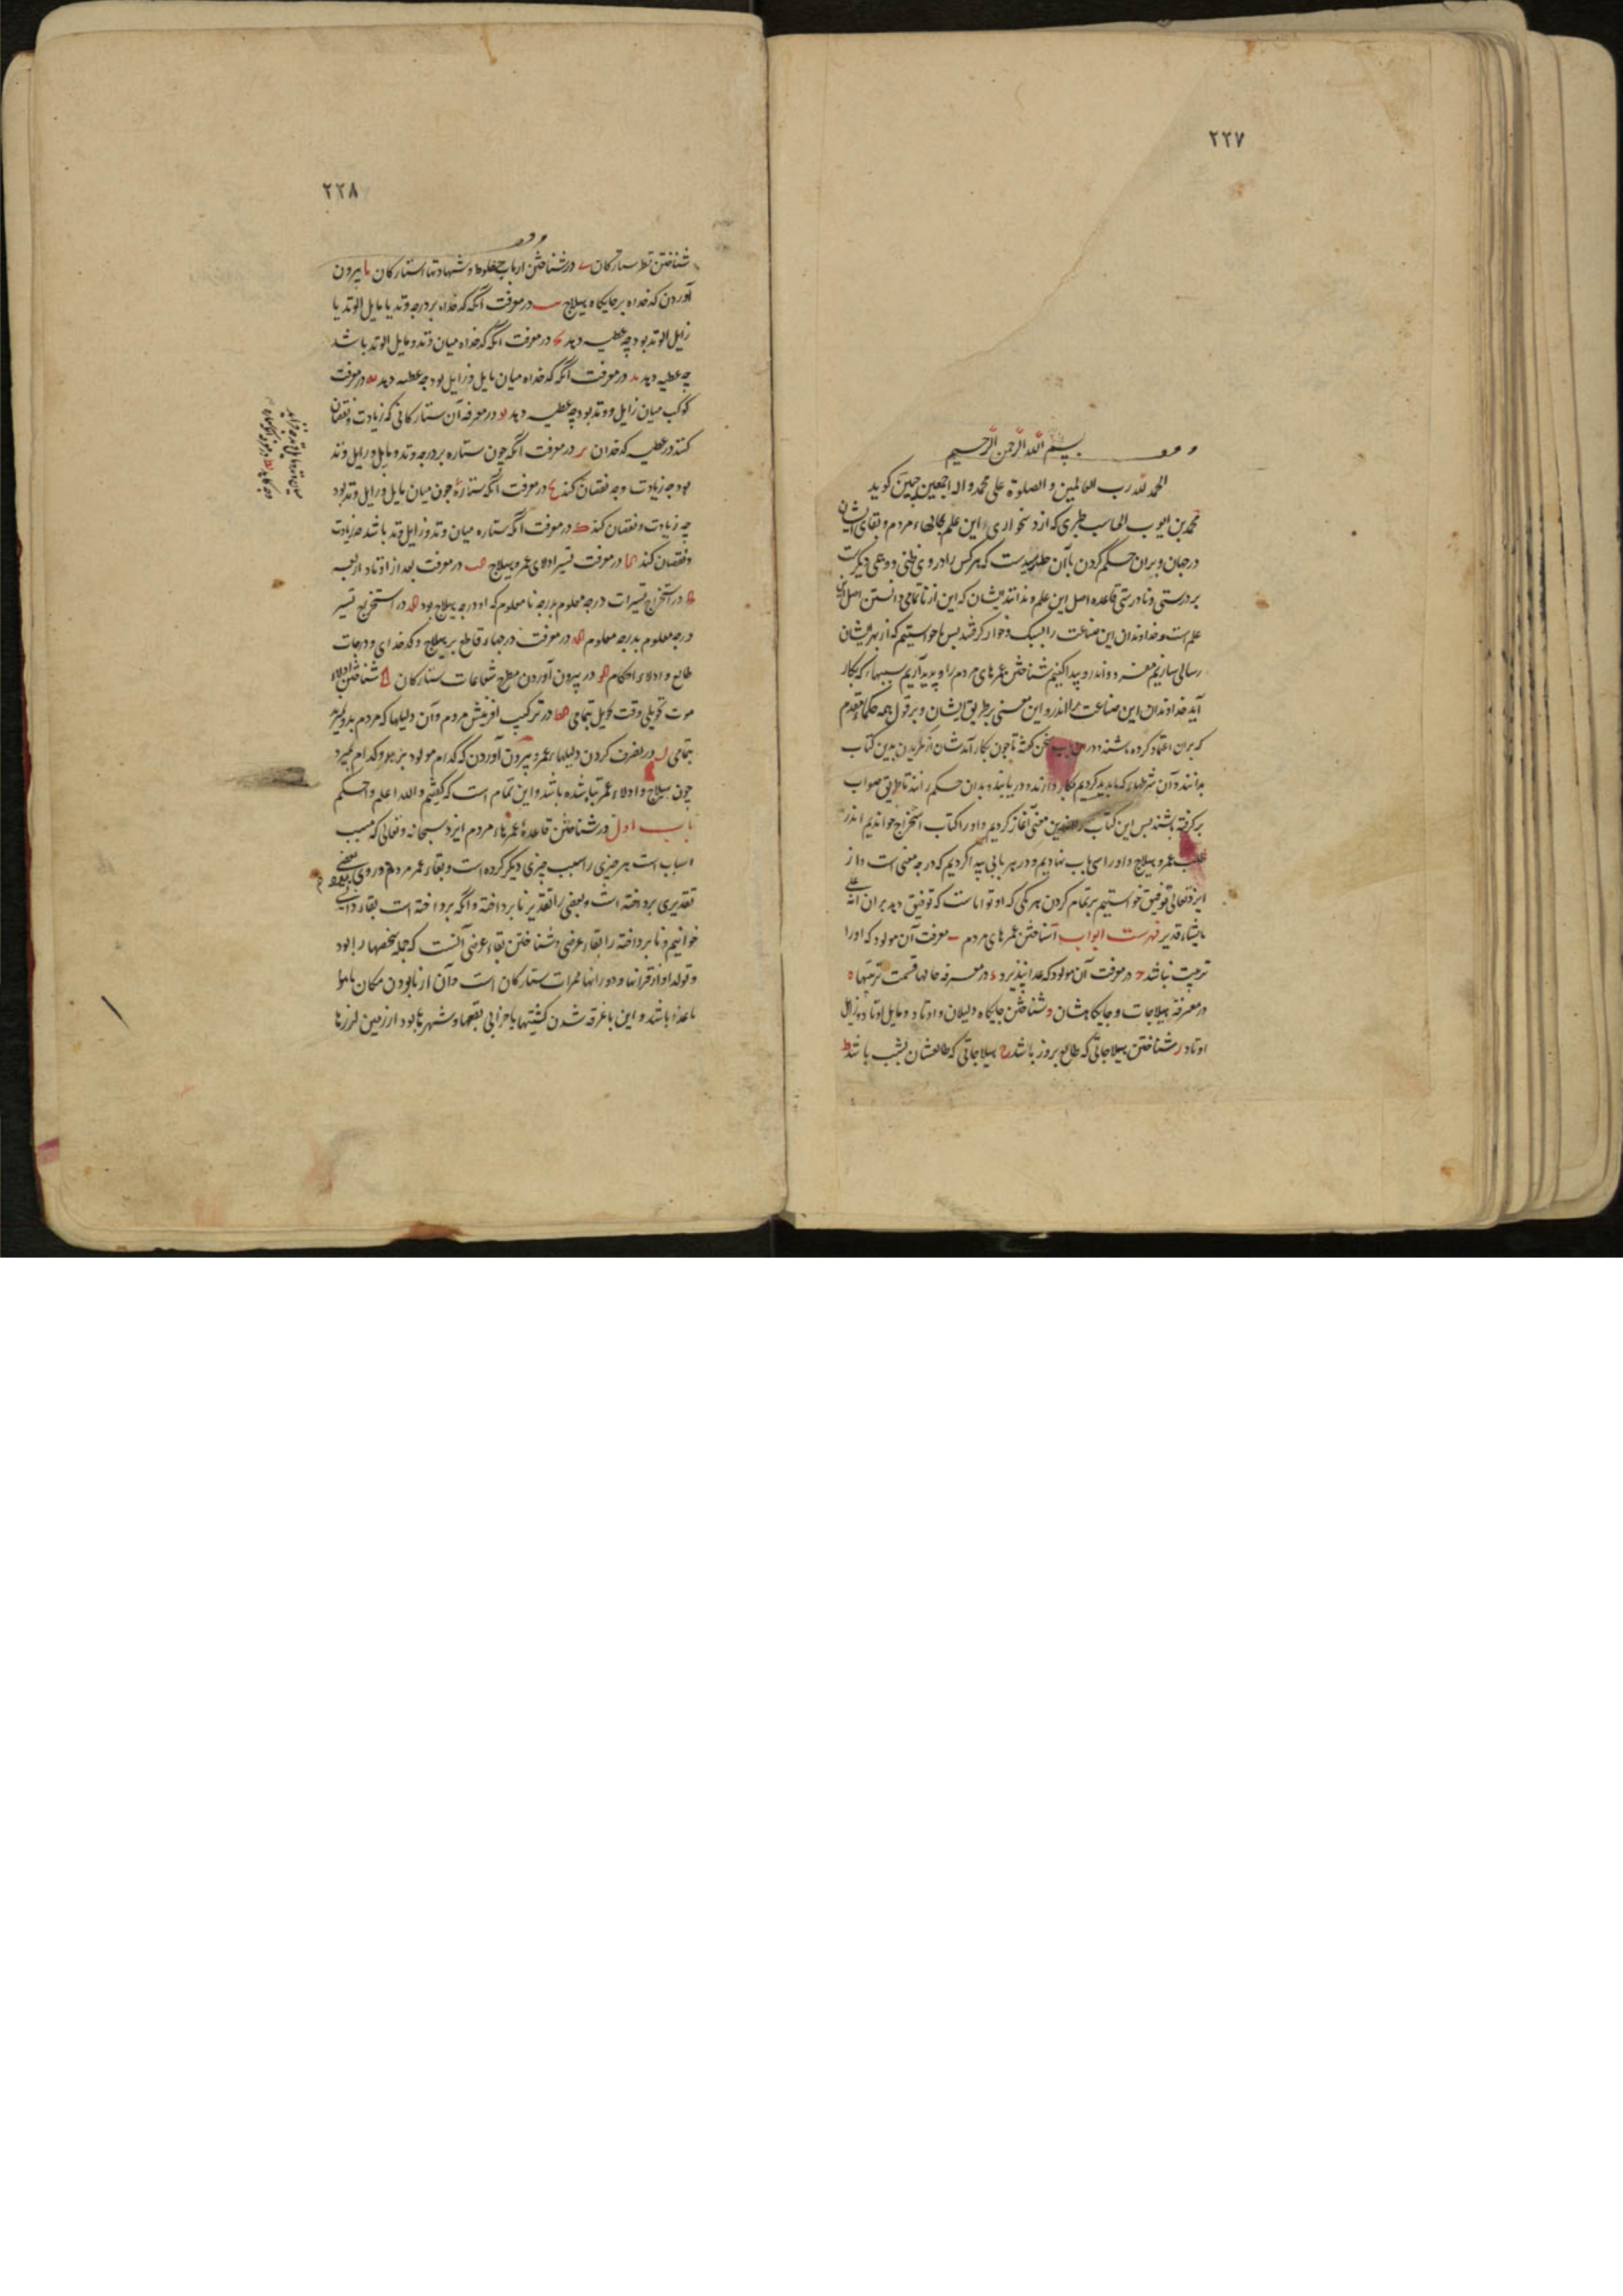 ۲۲۷
بسم الله الرحمن الرحیم
الحمد لله رب العالمین و الصلوة علی محمد و اله اجمعین چنین کوید
محمد بن ایوب الحاسب طبری که از دشخواری این علم مردم و بقای ایشان
در جهان و بران حکم کردن بآن رسیدست که هر کس را در وی ظنی و دعوی دیکرست
بر درستی و نادرستی قاعده اصل این علم و ندانند یشان که این از ناتمامی دانستن اصل این
علم است و خداوندان این صناعت را سبک و خوار کرفتند بس ما خواستیم که از بهر یشان
رسالی سازیم مفرد و اندرو پیدا کنیم شناختن عمرهای مردم را و پدید آریم سببهاء که بکار
آید خداوندان این صناعت را اندرو این معنی بر طریق ایشان و بر قول همه حکماء متقدم
که بران اعتماد کرده باشند و در سخن کفته تا چون بکار آیدشان از طریق بدین کتاب
بدانند و آن شرطهاء که ما پدید کردیم بکار دارند و دریابند و بدان حکم رانند تا طریق صواب
برکرفته باشند بس این کتاب را بدین معنی آغاز کردیم و او را کتاب استخراج خواندیم اندر
عمر و هیلاج و او را سی باب نهادیم و در هر بابی پیدا کردیم که در چه معنی است و از
ایزد تعالی توفیق خواستیم بر تمام کردن هر یکی که او تواناست که توفیق دهد بران انه علی
مایشاء قدیر فهرست ابواب آ شناختن عمرهای مردم ب معرفت آن مولود که او را
تربیت نباشد ج در معرفت آن مولود که غدا نپذیرد د در معرفه حالها قسمت تربیتها ه
در معرفة هیلاجات و جایکاهشان و شناختن جایکاه دلیلان و اوتاد و مایل اوتاد و زایل
اوتاد ز شناختن هیلاجاتی که طالع بروز باشد ح هیلاجاتی که طالعشان بشب باشد ط
۲۲۸
شناختن نظر ستارکان ی در شناختن ارباب حظوظ و شهادتهاء ستارکان یا بیرون
آوردن کدخداه بر جایکاه هیلاج یب در معرفت آنکه کدخداه بر درجه وتد یا مایل الوتد یا
زایل الوتد بود چه عطیه دهد یج در معرفت آنکه کدخداه میان وتد و مایل الوتد باشد
چه عطیه دهد ید در معرفت آنکه کدخداه میان مایل و زایل بود چه عطیه دهد یه در معرفت
کوکب میان زایل و وتد بود چه عطیه دهد یو در معرفه آن ستارکانی که زیادت و نقصان
کنند در عطیه کدخدان یز در معرفت آنکه چون ستاره بر درجه وتد و مایل و زایل وتد
بود چه زیادت و چه نقصان کند یح در معرفت آنکه ستارۀ چون میان مایل و زایل وتد بود
چه زیادت و نقصان کند ک در معرفت آنکه ستاره میان وتد و زایل وتد باشد چه زیادت
و نقصان کند کا در معرفت تسییر ادلای عمر و هیلاج کب در معرفت بعد از اوتاد اربعه
کج در استخراج تسییرات درجه معلوم بدرجه نا معلوم که او درجه هیلاج بود کد در استخراج تسییر
درجه معلوم بدرجه معلوم که در معرفت درجهاء قاطع بر هیلاج و کدخدای و درجات
طالع و ادلاء احکام کو در بیرون آوردن مطرح شعاعات ستارکان کز شناختن ادلاء
موت تحویلی وقت تحویل بتمامی کط در ترکیب افرینش مردم و آن دلیلها که مردم بدو میرند
بتمامی ل در تصرف کردن دلیلهاء عمر و بیرون آوردن که کدام مولود بزید و کدام بمیرد
چون هیلاج و ادلاء عمر تباه شده باشد و این تمام است که کفتیم والله اعلم واحکم
باب اول در شناختن قاعدۀ عمرهاء مردم ایزد سبحانه و تعالی که مسبب
اسباب است هر چیزی را سبب چیزی دیکر کرده است و بقاء عمر مردم در وی بعضی
تقدیری پرداخته است و بعضی را تقدیر ناپرداخته و آنکه پرداخته است بقاء ذاتی
خوانیم و ناپرداخته را بقاء عرضی و شناختن بقاء عرضی آنست که جمله شخصها را بود
و تولد او از قرانها و دورانها ممرات ستارکان است و آن از نابودن مکان یا هوا
یا غذا باشد و این با غرقه شدن کشتیها یا خرابی بقعها و شهرها بود از زمین لرزها